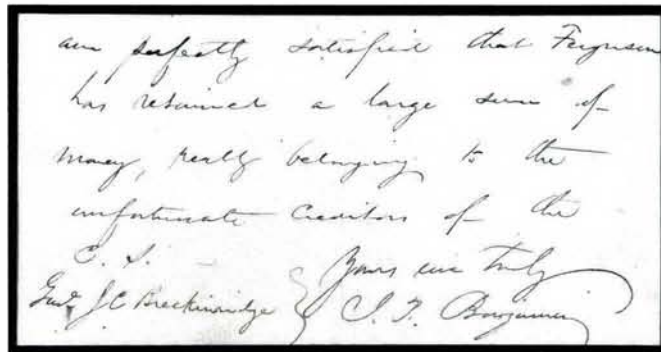 am perfectly satisfied that Ferguson
has retained a large sum of
money, really belonging to the
unfortunate creditors of the
C. S.
Yours ever truly
Genl. J C Breckinridge J. P. Benjamin